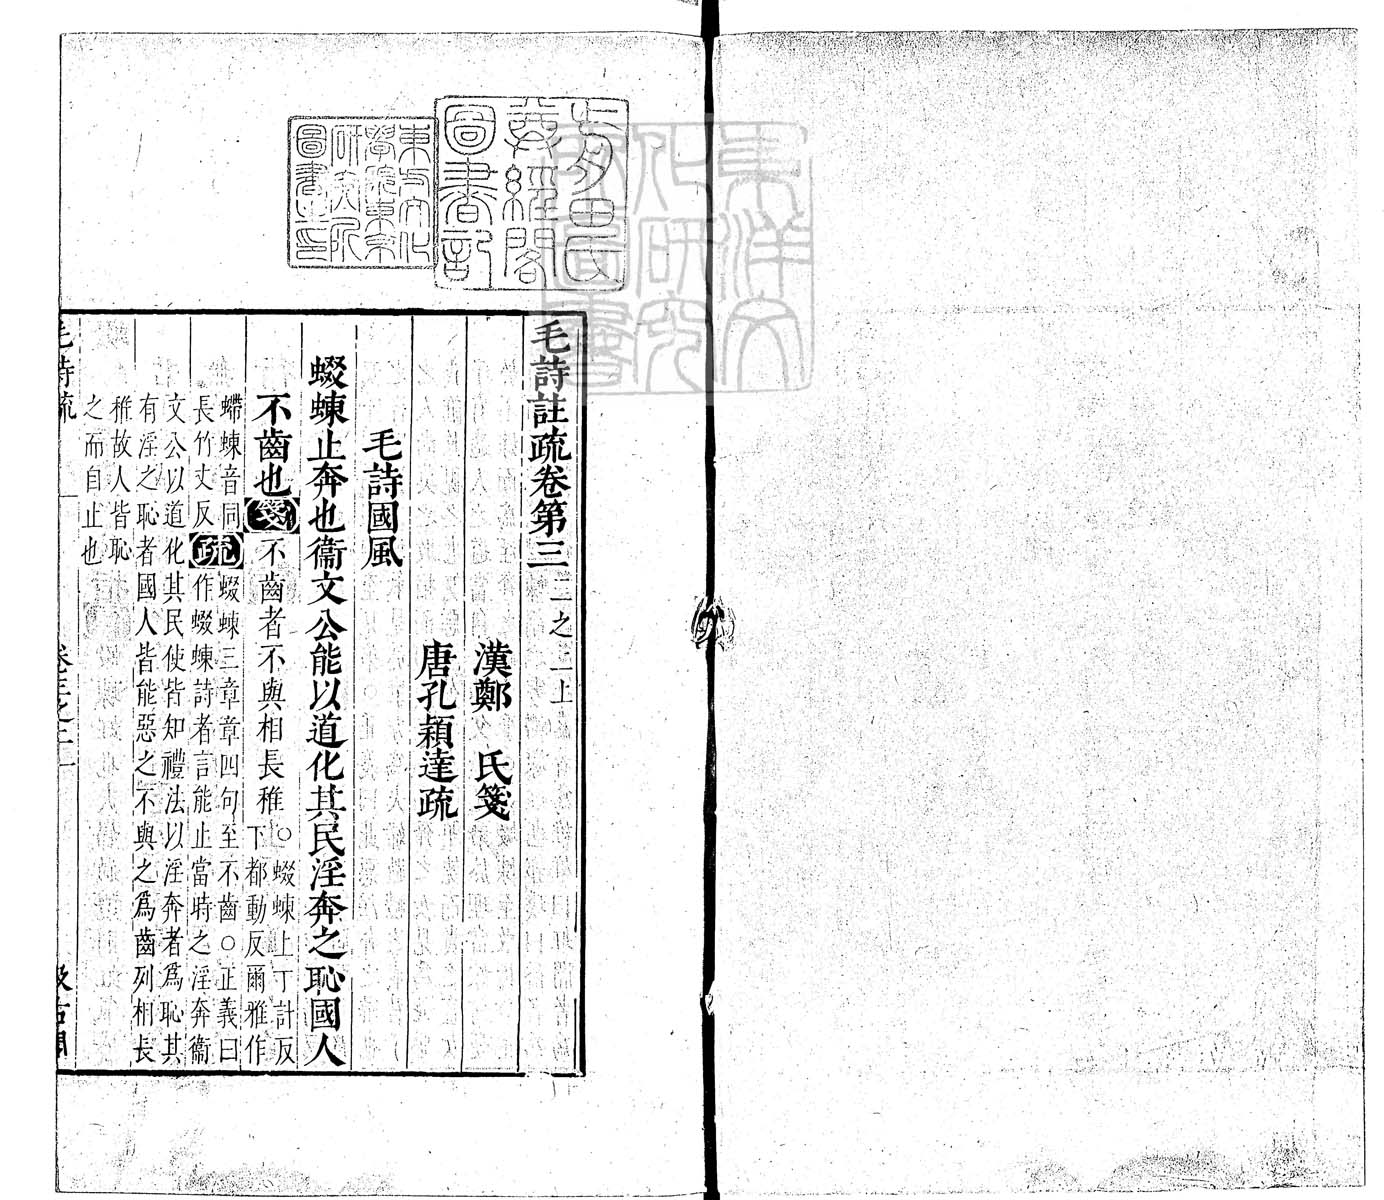 毛詩註疏卷第三
三之二上
漢鄭　氏箋
唐孔穎達疏
毛詩國風
蝃蝀止奔也衞文公能以道化其民淫奔之恥國人
不齒也箋不齒者不與相長稚
○蝃蝀上丁計反
下都動反爾雅作
螮蝀音同
長竹丈反
疏
蝃蝀三章章四句至不齒○正義曰
作蝃蝀詩者言能止當時之淫奔衞
文公以道化其民使皆知禮法以淫奔者爲恥其
有淫之恥者國人皆能惡之不與之爲齒列相長
稚故人皆恥
之而自止也
毛詩疏
卷三之二
一
汲古閣
前田氏
尊經閣
圖書記
東方文化
學院東京
研究所
圖書之印
東洋文
化研究
所圖書